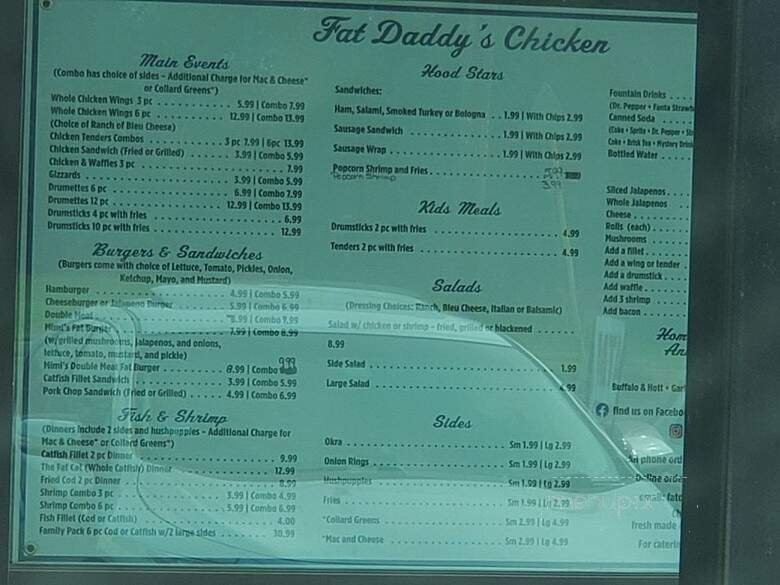 Fat Daddy's Chicken
Main Events
(Combo has choice of sides - Additional Charge for Mac & Cheese*
or Collard Greens*)
Whole Chicken Wings 3 pc . . . . . . . . . . 5.99 | Combo 7.99
Whole Chicken Wings 6 pc . . . . . . . . . . 12.99 | Combo 13.99
(Choice of Ranch of Bleu Cheese)
Chicken Tenders Combos . . . . . . . . . . 3 pc 7.99 | 6pc 13.99
Chicken Sandwich (Fried or Grilled) . . . . . . . . 3.99 | Combo 5.99
Chicken & Waffles 3 pc . . . . . . . . . . 7.99
Gizzards . . . . . . . . . . 3.99 | Combo 5.99
Drumettes 6 pc . . . . . . . . . . 6.99 | Combo 7.99
Drumettes 12 pc . . . . . . . . . . 12.99 | Combo 13.99
Drumsticks 4 pc with fries . . . . . . . . . . 6.99
Drumsticks 10 pc with fries . . . . . . . . . . 12.99
Burgers & Sandwiches
(Burgers come with choice of Lettuce, Tomato, Pickles, Onion,
Ketchup, Mayo, and Mustard)
Hamburger . . . . . . . . . . 4.99 | Combo 5.99
Cheeseburger or Jalapeno Burger . . . . . . . . 5.99 | Combo 6.99
Double Meat . . . . . . . . . . 8.99 | Combo 9.99
Mimi's Fat Burger . . . . . . . . . . 7.99 | Combo 8.99
(w/grilled mushrooms, jalapenos, and onions,
lettuce, tomato, mustard, and pickle)
9.99
Mimi's Double Meat Fat Burger . . . . . . . . 8.99 | Combo
Catfish Fillet Sandwich . . . . . . . . . . 3.99 | Combo 5.99
Pork Chop Sandwich (Fried or Grilled) . . . . . . . . 4.99 | Combo 6.99
Fish & Shrimp
(Dinners include 2 sides and hushpuppies - Additional Charge for
Mac & Cheese* or Collard Greens*)
Catfish Fillet 2 pc Dinner . . . . . . . . . . 9.99
The Fat Cat (Whole Catfish) Dinner . . . . . . . . 12.99
Fried Cod 2 pc Dinner . . . . . . . . . . 8.99
Shrimp Combo 3 pc . . . . . . . . . . 3.99 | Combo 4.99
Shrimp Combo 6 pc . . . . . . . . . . 5.99 | Combo 6.99
Fish Fillet (Cod or Catfish) . . . . . . . . . . 4.00
Family Pack 6 pc Cod or Catfish w/2 large sides . . . . . . 30.99
Hood Stars
Sandwiches:
Ham, Salami, Smoked Turkey or Bologna . . 1.99 | With Chips 2.99
Sausage Sandwich . . . . . . . . . . 1.99 | With Chips 2.99
Sausage Wrap . . . . . . . . . . 1.99 | With Chips 2.99
Popcorn Shrimp and Fries . . . . . . . . . . 5.99
Popcorn Shrimp 3.99
Kids Meals
Drumsticks 2 pc with fries . . . . . . . . . . 4.99
Tenders 2 pc with fries . . . . . . . . . . 4.99
Salads
(Dressing Choices: Ranch, Bleu Cheese, Italian or Balsamic)
Salad w/ chicken or shrimp - fried, grilled or blackened . . . . . .
8.99
Side Salad . . . . . . . . . . 1.99
Large Salad . . . . . . . . . . 4.99
Sides
Okra . . . . . . . . . . Sm 1.99 | Lg 2.99
Onion Rings . . . . . . . . . . Sm 1.99 | Lg 2.99
Hushpuppies . . . . . . . . . . Sm 1.99 | Lg 2.99
Fries . . . . . . . . . . Sm 1.99 | Lg 2.99
*Collard Greens . . . . . . . . . . Sm 2.99 | Lg 4.99
*Mac and Cheese . . . . . . . . . . Sm 2.99 | Lg 4.99
Fountain Drinks . . . .
(Dr. Pepper • Fanta Strawb
Canned Soda . . . .
(Coke • Sprite • Dr. Pepper • Str
Coke • Brisk Tea • Mystery Drink
Bottled Water . . . .
Sliced Jalapenos . . . .
Whole Jalapenos . . . .
Cheese . . . .
Rolls (each) . . . .
Mushrooms . . . .
Add a fillet . . . .
Add a wing or tender .
Add a drumstick . . .
Add waffle . . . .
Add 3 shrimp . . . .
Add bacon . . . .
Hom
An
Buffalo & Hott • Gar
find us on Facebo
phone ord
Online orde
email: fatd
Fresh made
For caterin